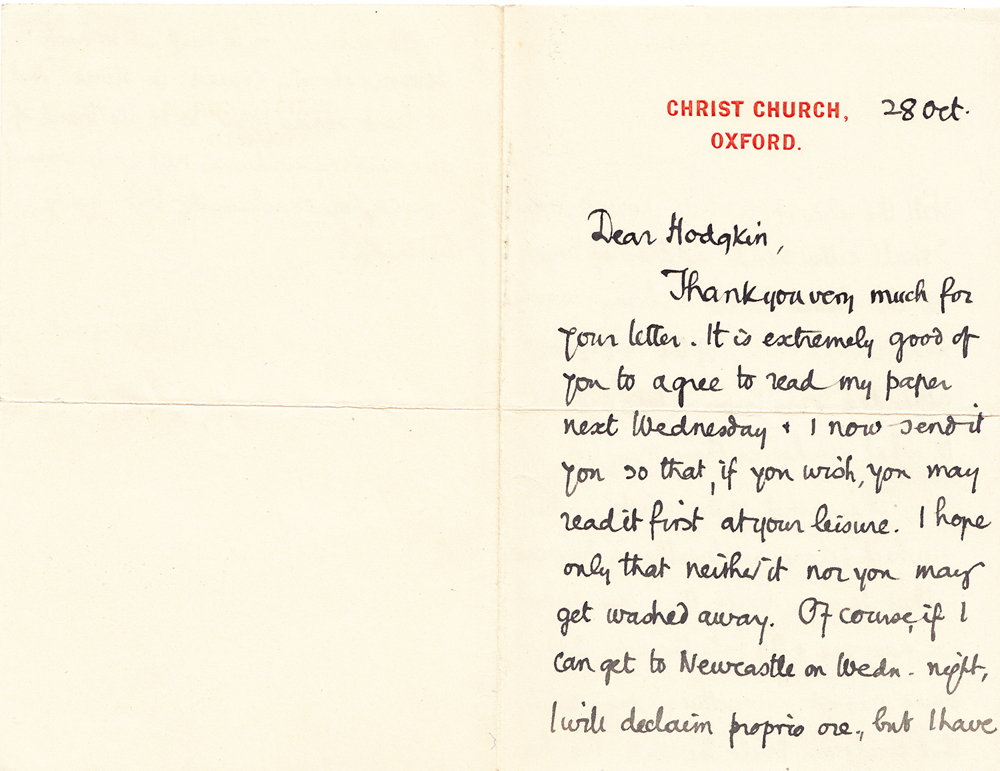 CHRIST CHURCH, 28 Oct.
OXFORD.
Dear Hodgkin,
Thank you very much for
your letter. It is extremely good of
you to agree to read my paper
next Wednesday + I now send it
you so that, if you wish, you may
read it first at your leisure. I hope
only that neither it nor you may
get washed away. Of course, if I
can get to Newcastle on Wedn. night,
I will declaim proprio ore, but I have